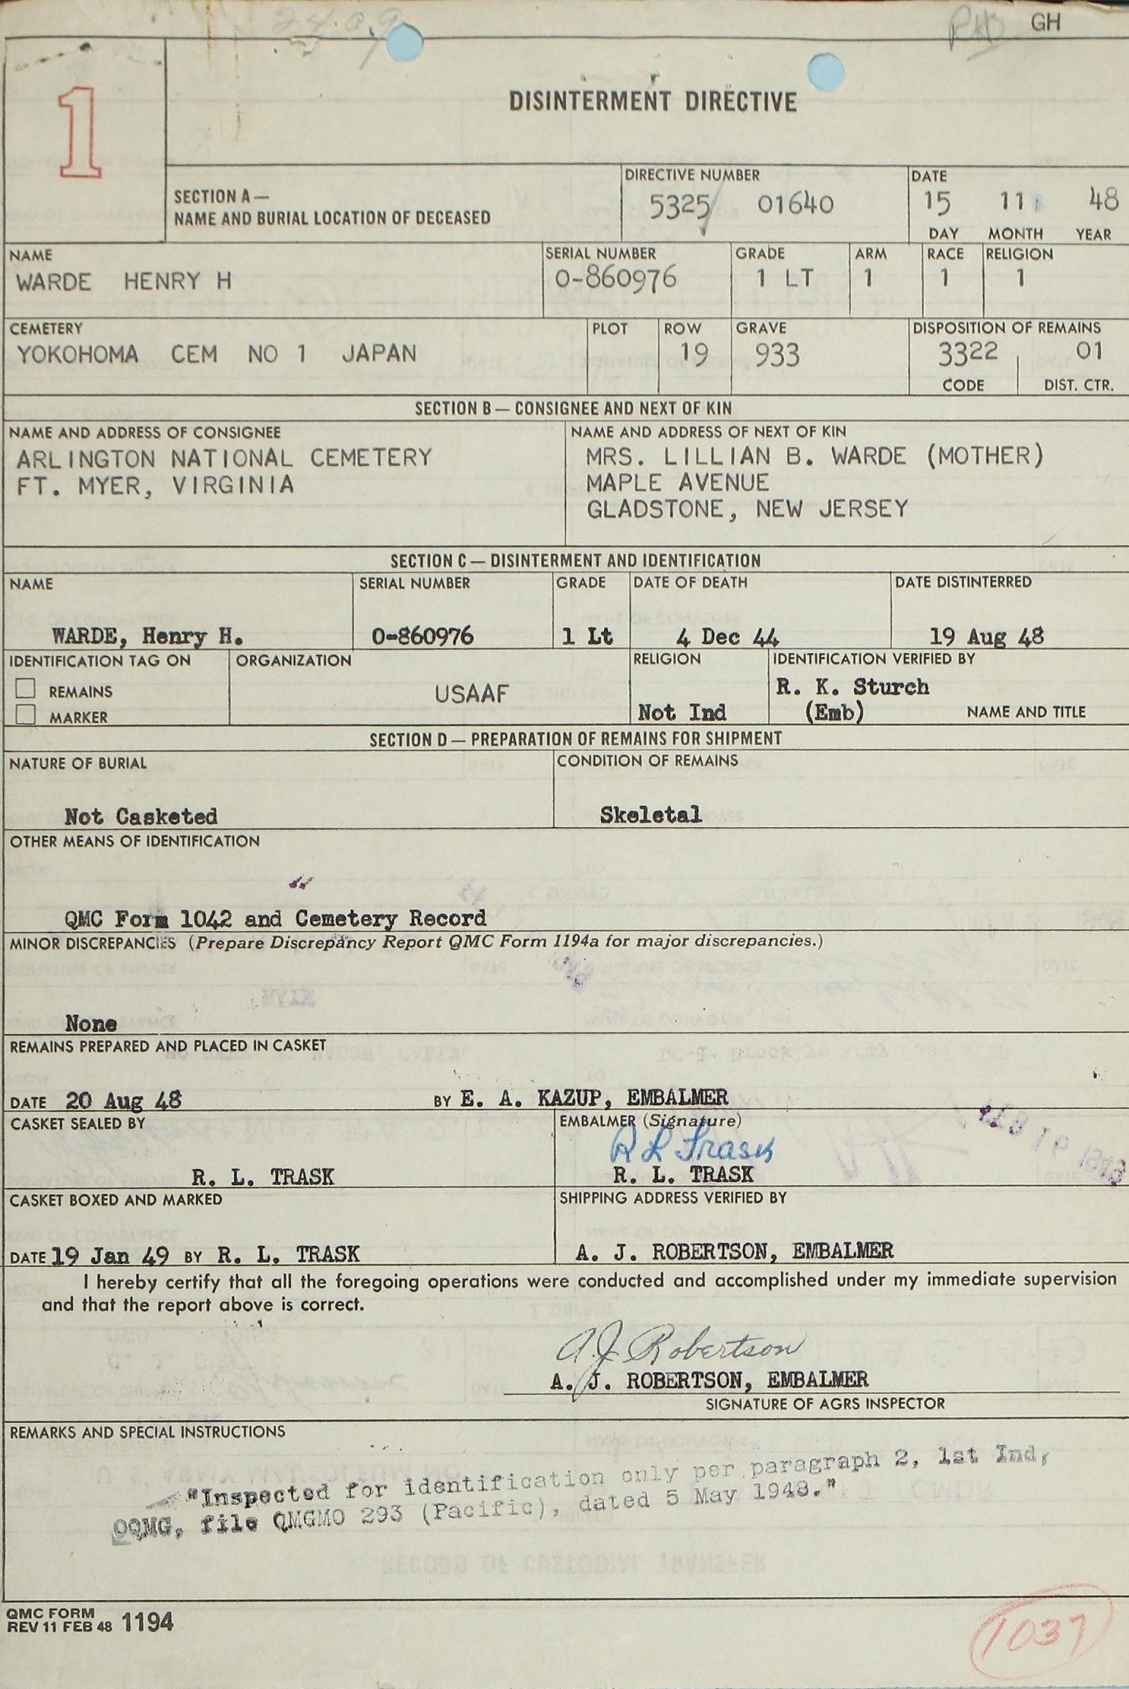 24.09
RHD GH
1
DISINTERMENT DIRECTIVE
SECTION A—
NAME AND BURIAL LOCATION OF DECEASED
DIRECTIVE NUMBER
5325 01640
DATE
15 11 48
DAY MONTH YEAR
NAME
WARDE HENRY H
SERIAL NUMBER
O-860976
GRADE
1 LT
ARM
1
RACE
1
RELIGION
1
CEMETERY
YOKOHOMA CEM NO 1 JAPAN
PLOT
ROW
19
GRAVE
933
DISPOSITION OF REMAINS
3322 01
CODE DIST. CTR.
SECTION B — CONSIGNEE AND NEXT OF KIN
NAME AND ADDRESS OF CONSIGNEE
ARLINGTON NATIONAL CEMETERY
FT. MYER, VIRGINIA
NAME AND ADDRESS OF NEXT OF KIN
MRS. LILLIAN B. WARDE (MOTHER)
MAPLE AVENUE
GLADSTONE, NEW JERSEY
SECTION C — DISINTERMENT AND IDENTIFICATION
NAME
WARDE, Henry H.
SERIAL NUMBER
O-860976
GRADE
1 Lt
DATE OF DEATH
4 Dec 44
DATE DISTINTERRED
19 Aug 48
IDENTIFICATION TAG ON
REMAINS
MARKER
ORGANIZATION
USAAF
RELIGION
Not Ind
IDENTIFICATION VERIFIED BY
R. K. Sturch
(Emb) NAME AND TITLE
SECTION D — PREPARATION OF REMAINS FOR SHIPMENT
NATURE OF BURIAL
Not Casketed
CONDITION OF REMAINS
Skeletal
OTHER MEANS OF IDENTIFICATION
QMC Form 1042 and Cemetery Record
MINOR DISCREPANCIES (Prepare Discrepancy Report QMC Form 1194a for major discrepancies.)
None
REMAINS PREPARED AND PLACED IN CASKET
DATE 20 Aug 48 BY E. A. KAZUP, EMBALMER
CASKET SEALED BY
R. L. TRASK
EMBALMER (Signature)
R L Trask
R. L. TRASK
CASKET BOXED AND MARKED
DATE 19 Jan 49 BY R. L. TRASK
SHIPPING ADDRESS VERIFIED BY
A. J. ROBERTSON, EMBALMER
I hereby certify that all the foregoing operations were conducted and accomplished under my immediate supervision
and that the report above is correct.
A J Robertson
A. J. ROBERTSON, EMBALMER
SIGNATURE OF AGRS INSPECTOR
REMARKS AND SPECIAL INSTRUCTIONS
"Inspected for identification only per paragraph 2, 1st Ind,
OQMG, file QMGMO 293 (Pacific), dated 5 May 1948."
QMC FORM
REV 11 FEB 48 1194
1037